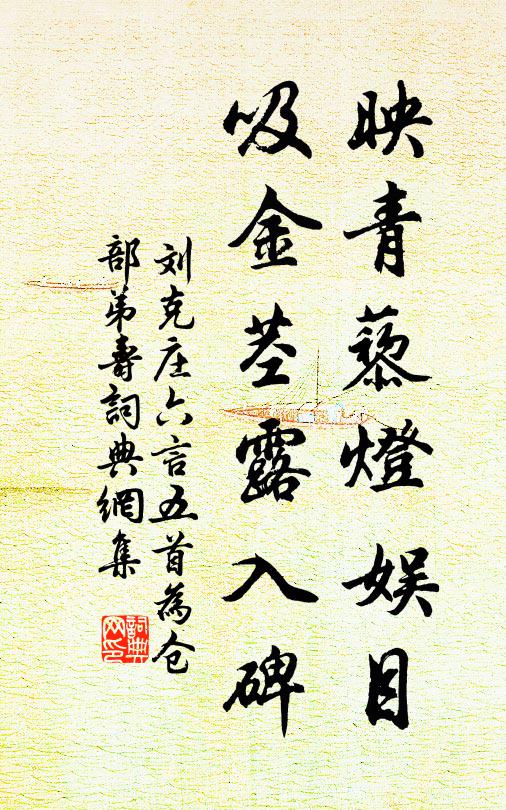 映青藜燈娱目
吸金茎露入碑
刘克庄六言五首為仓
部弟壽詞典網集
詞典
网印